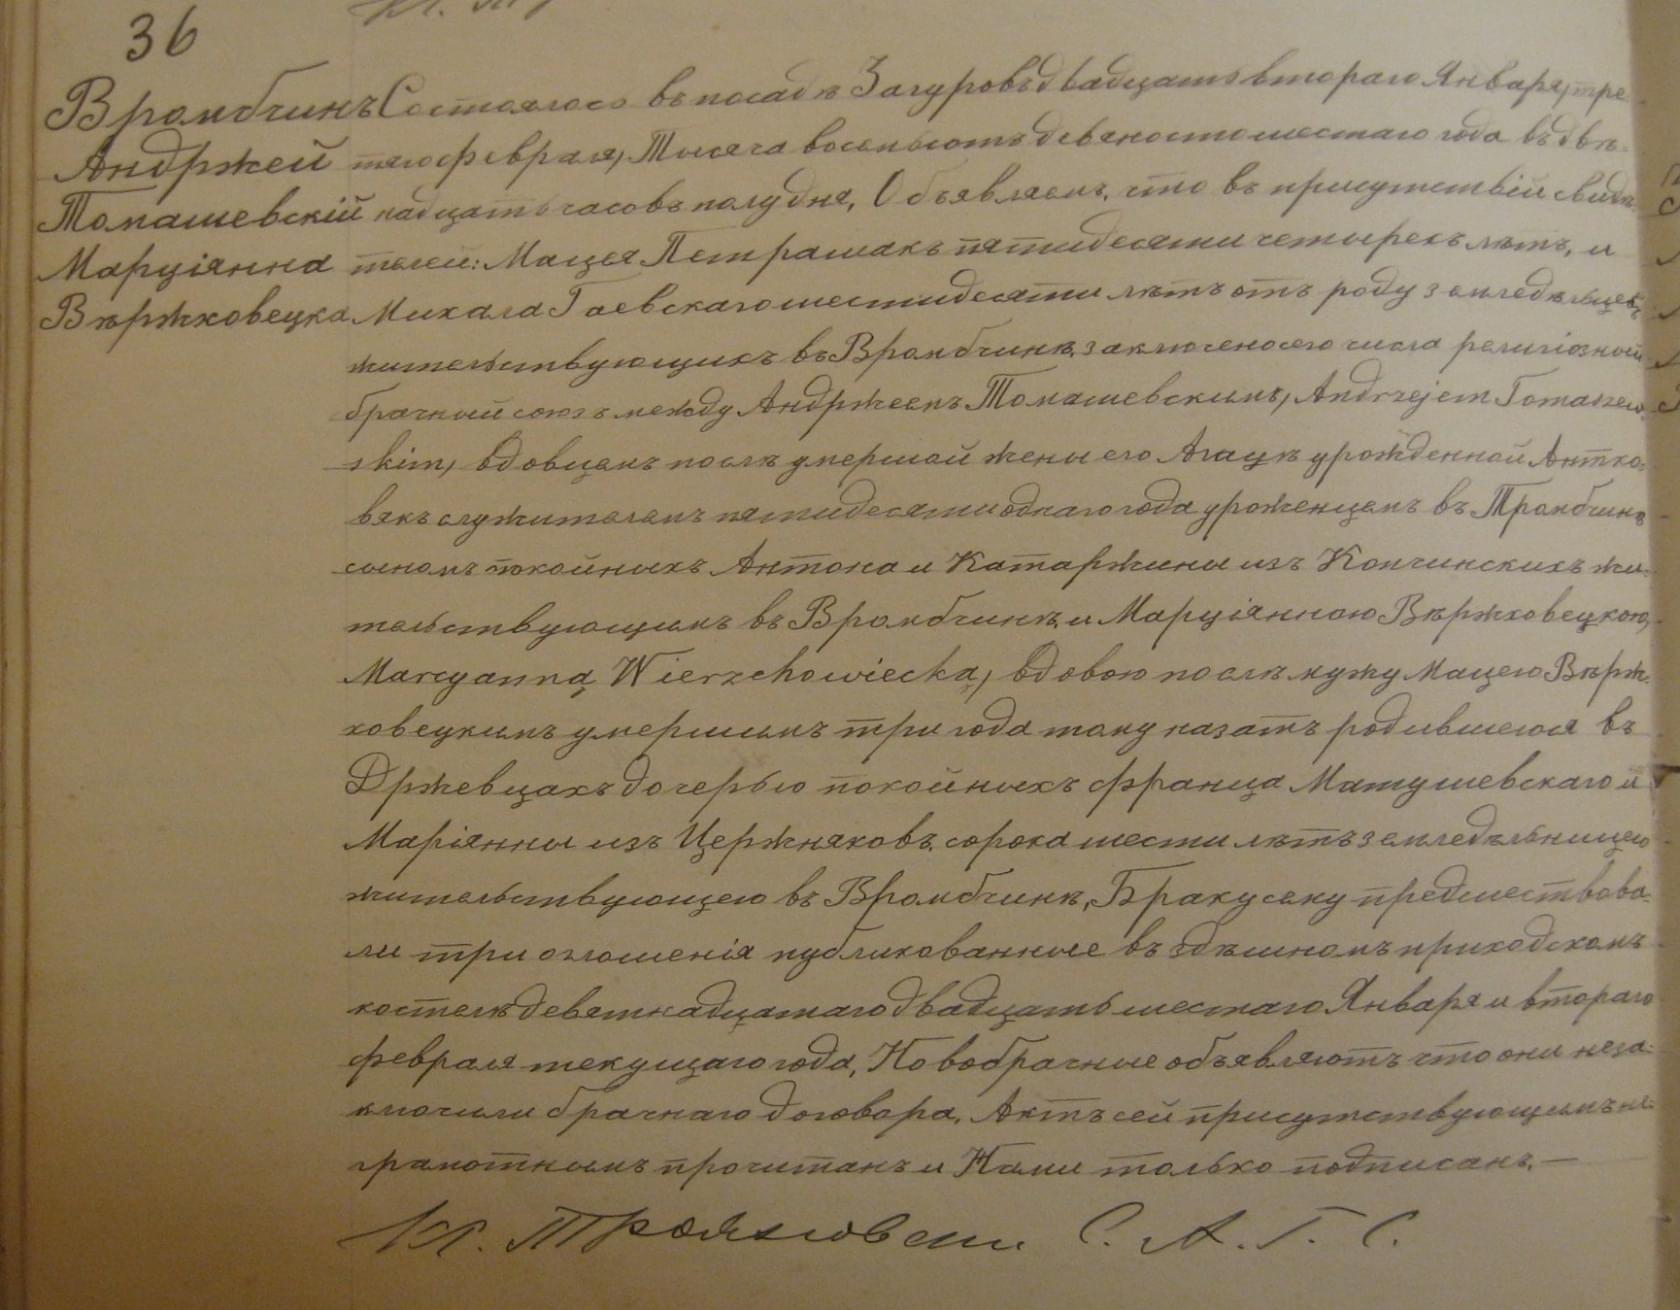 36
Вромбчинъ
Анджей
Томашевскій
Марціянна
Вѣржховецка
Состоялось въ посадѣ Загуровѣ двадцать втораго Января, тре-
тяго февраля, Тысяча восемьсотъ девяносто шестаго года въ двѣ-
надцать часовъ полудня, Объявляемъ, что въ присутствіи свидѣ-
телей: Мацея Петрашакъ пятидесяти четырехъ лѣтъ, и
Михала Гаевскаго шестидесяти лѣтъ отъ роду земледѣльцевъ
жительствующихъ въ Вромбчинѣ, заключено сего числа религіозный
брачный союзъ между Андржеемъ Томашевскимъ, Andrzejem Tomaszew-
skim, вдовцемъ послѣ умершой жены его Агацѣ урожденной Антко-
вякъ служителемъ пятидесяти однаго года уроженцемъ въ Тромбчинѣ
сыномъ покойныхъ Антона и Катаржины изъ Копчинскихъ жи-
тельствующимъ въ Вромбчинѣ, и Марціянною Вѣржховецкою,
Marcyanną Wierzchowiecką, вдовою послѣ мужу Мацею Вѣрж-
ховецкимъ умершимъ три года тому назатъ родившеюся въ
Држевцахъ дочерью покойныхъ Франца Матушевскаго и
Маріянны изъ Цержняковъ, сорока шести лѣтъ земледѣльницею
жительствующею въ Вромбчинѣ, Браку сему предшествова-
ли три оглошенія публикованные въ здѣшномъ приходскомъ
костелѣ девятнадцатаго двадцать шестаго Января и втораго
февраля текущаго года, Новобрачные объявляютъ что они неза-
ключили брачнаго договора. Актъ сей присутствующимъ не-
грамотнымъ прочитанъ и Нами только подписанъ. —
С. А. Г. С.